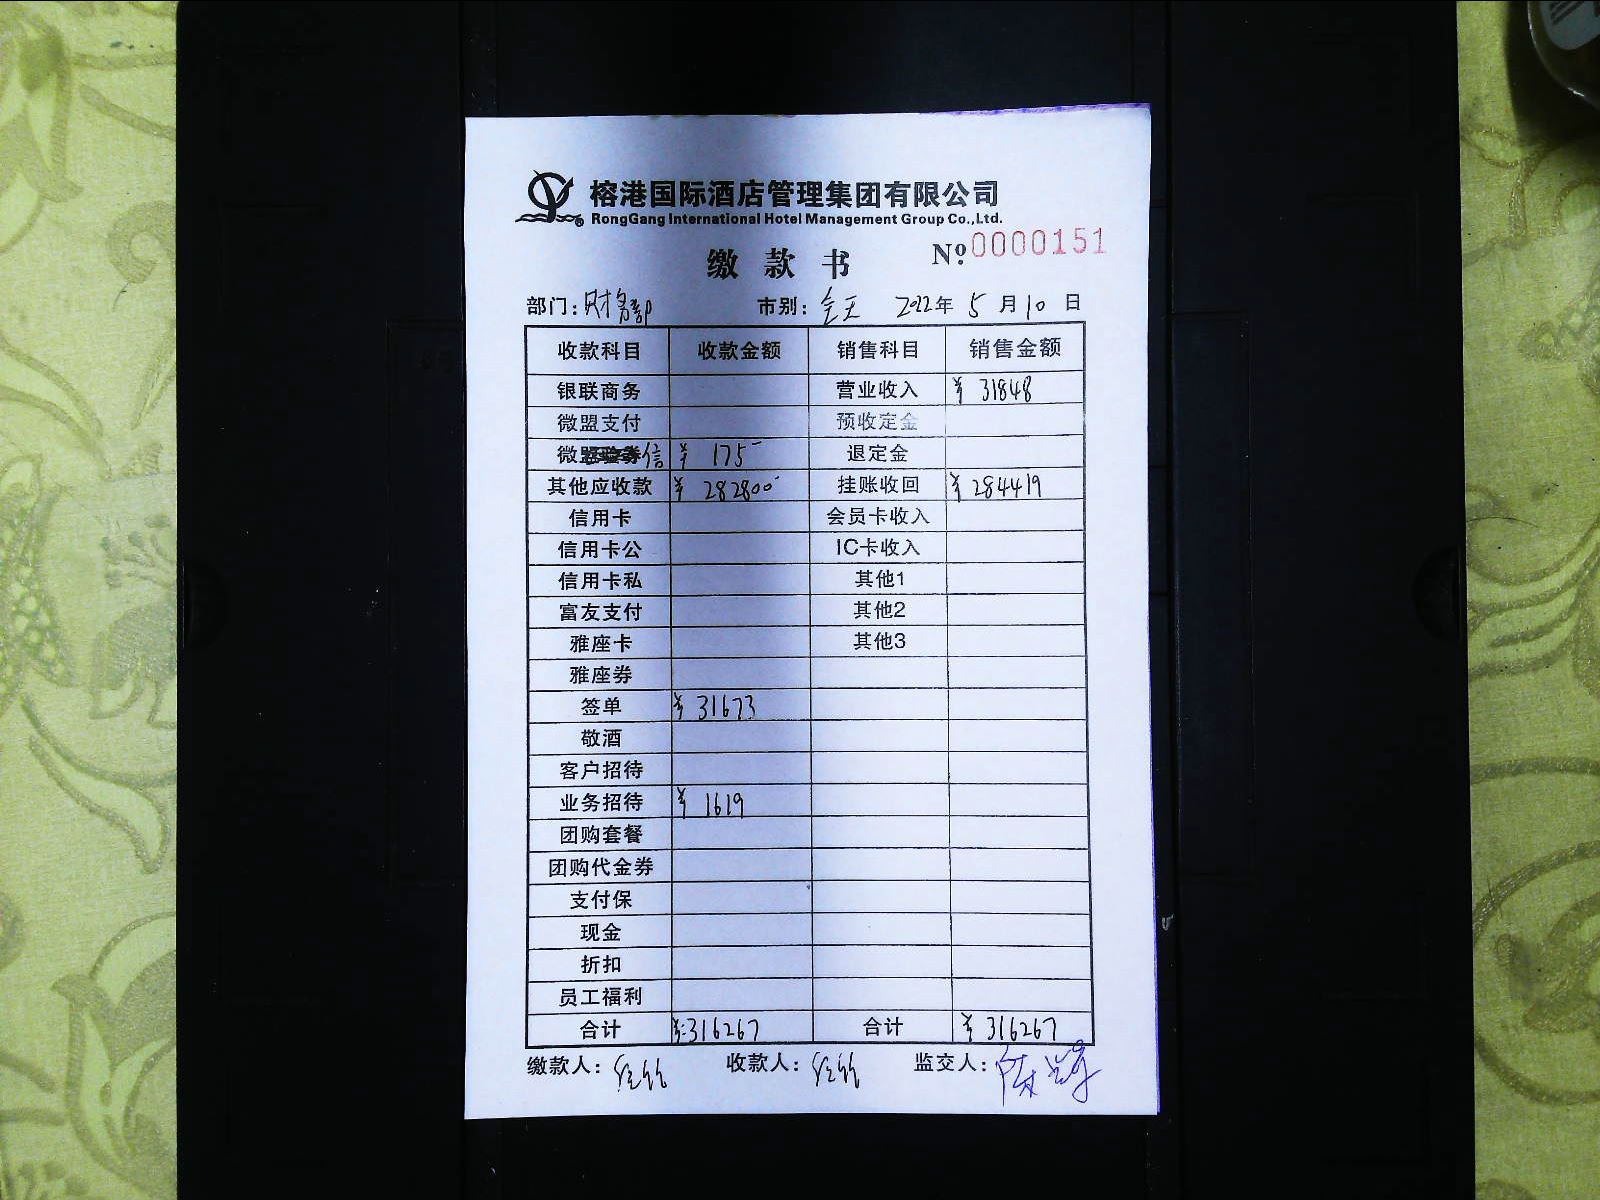 榕港国际酒店管理集团有限公司
RongGang International Hotel Management Group Co.,Ltd.
缴款书 №0000151
部门:财务部 市别:全天 2022年 5月10日
收款科目 收款金额 销售科目 销售金额
银联商务 营业收入 ¥ 31848
微盟支付 预收定金
微信 ¥ 175 退定金
其他应收款 ¥ 282800 挂账收回 ¥ 284419
信用卡 会员卡收入
信用卡公 IC卡收入
信用卡私 其他1
富友支付 其他2
雅座卡 其他3
雅座券
签单 ¥ 31673
敬酒
客户招待
业务招待 ¥ 1619
团购套餐
团购代金券
支付保
现金
折扣
员工福利
合计 ¥:316267 合计 ¥ 316267
缴款人: 收款人: 监交人: